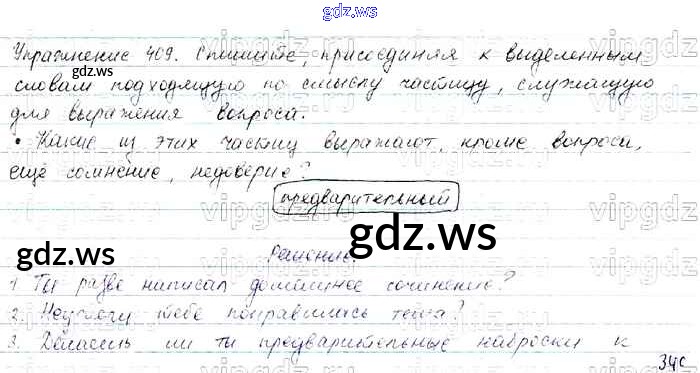 gdz.ws
Упражнение 409. Спишите, присоединяя к выделенным
словам подходящую по смыслу частицу, служащую
для выражения вопроса.
• Какие из этих частиц выражают, кроме вопроса,
ещё сомнение, недоверие?
предварительный
Решение.
1. Ты разве написал домашнее сочинение?
2. Неужели тебе понравилась тема?
3. Делаешь ли ты предварительные наброски к